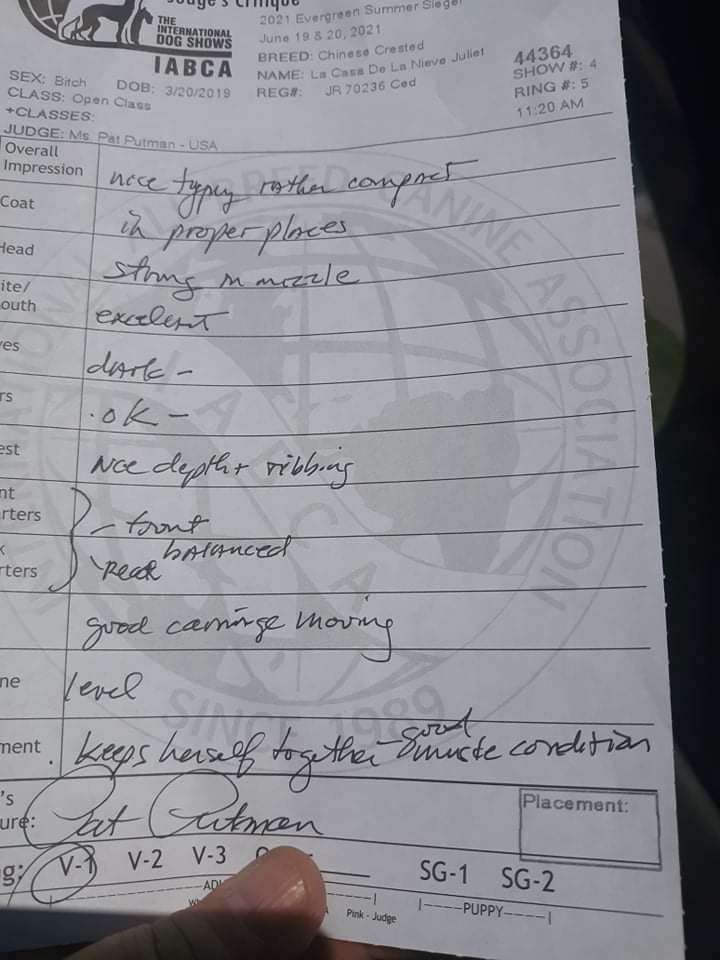 Judge's Critique
2021 Evergreen Summer Sieger
THE
INTERNATIONAL
DOG SHOWS
IABCA
June 19 & 20, 2021
BREED: Chinese Crested
NAME: La Casa De La Nieve Juliet
REG#: JR 70236 Ced
44364
SHOW #: 4
RING #: 5
11:20 AM
SEX: Bitch DOB: 3/20/2019
CLASS: Open Class
+CLASSES:
JUDGE: Ms. Pat Putman - USA
Overall
Impression nice typey rather compact
Coat in proper places
Head strong in muzzle
ite/
outh excelent
yes dark -
rs . OK -
est Nce depth + ribbing
nt
rters - front
balanced
k
rters rear
good carriage moving
ne level
ment . keeps herself together good muscle condition
's
ure: Pat Putman
Placement:
g: V-1 V-2 V-3 SG-1 SG-2
Pink - Judge
PUPPY
INTERNATIONAL ALL BREED CANINE ASSOCIATION
IABCA
SINCE 1989